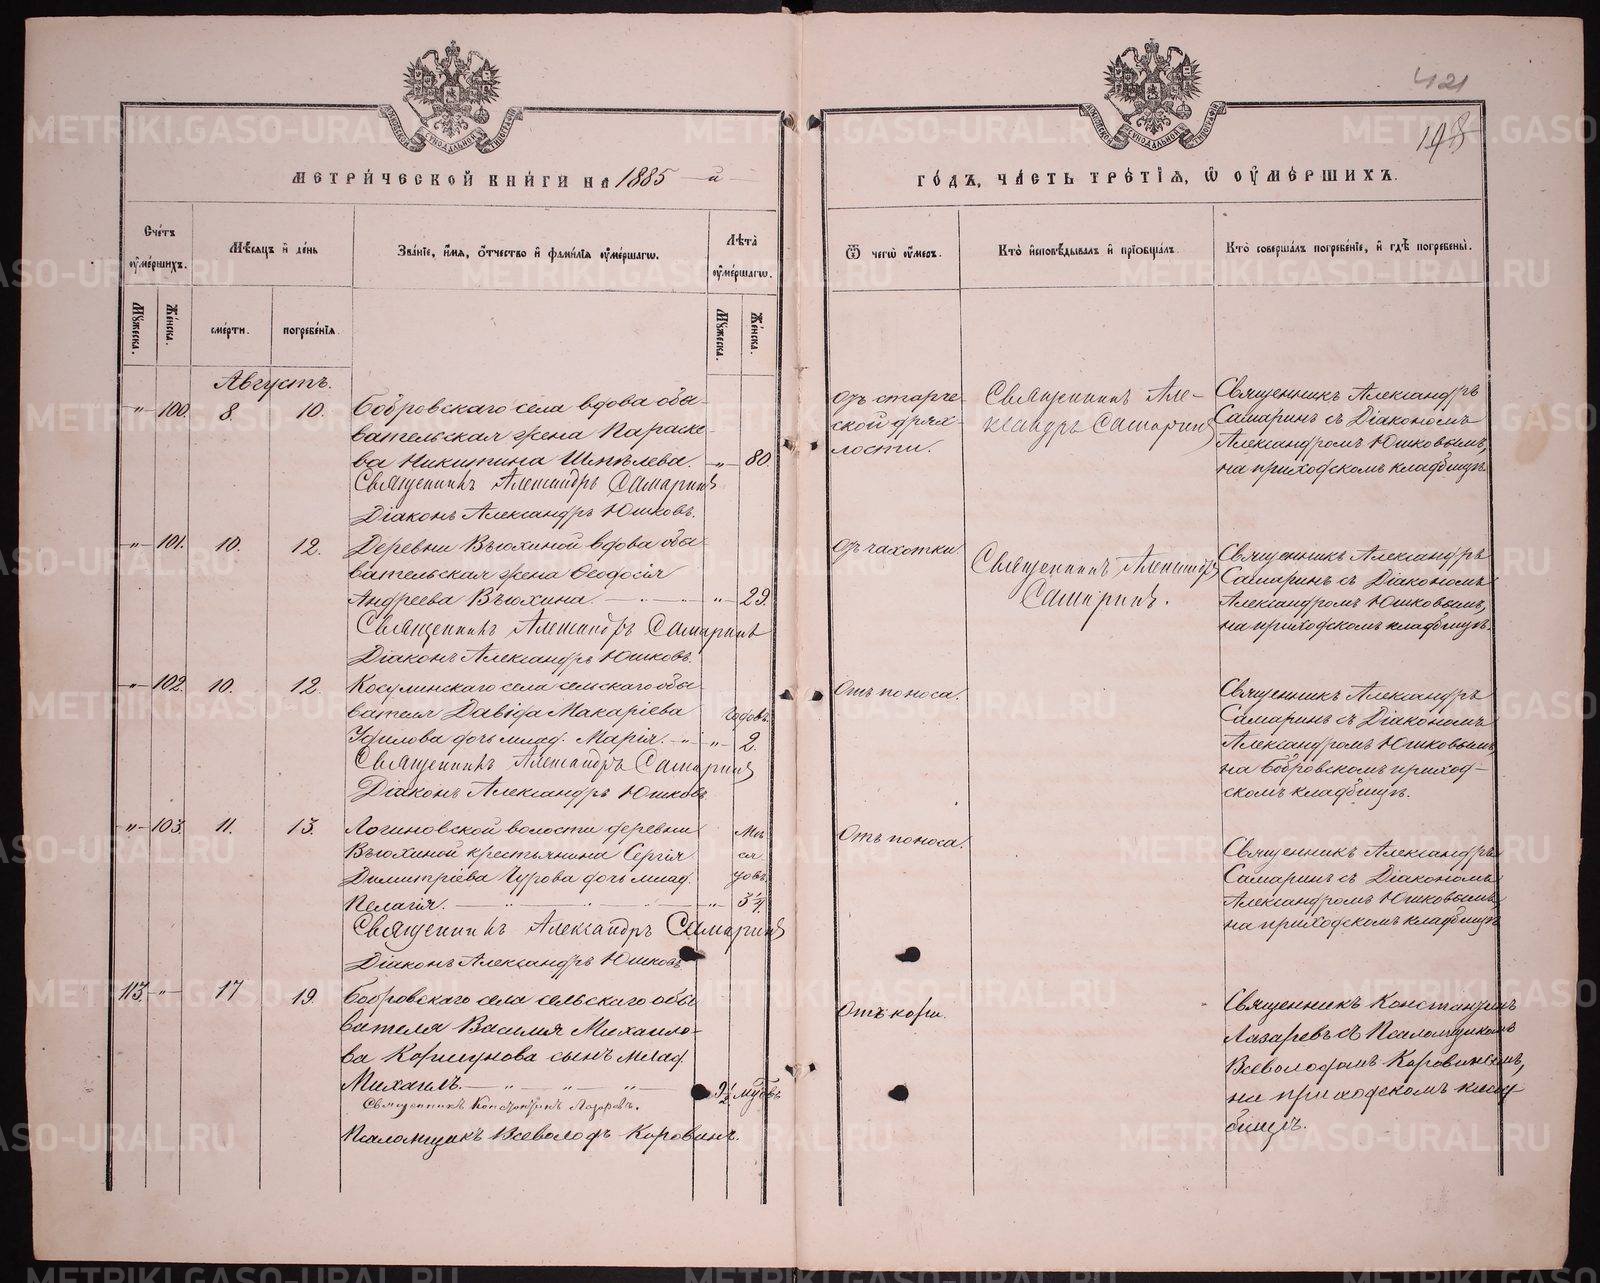 421
198
МЕТРИ́ЧЕСКОЙ КНИ́ГИ НА 1885 й
ГО́ДЪ, ЧА́СТЬ ТРЕ́ТІѦ, Ѡ ОУ҆МЕ́РШИХЪ.
Сче́тъ оу҆ме́ршихъ.
Мѣ́сяцъ и҆ де́нь
Зва́ніе, и҆́мя, о҆́тчество и҆ фами́лія оу҆ме́ршагѡ.
Лѣ́та оу҆ме́ршагѡ.
Ѿ чегѡ̀ оу҆́меръ.
Кто̀ и҆сповѣ́дывалъ и҆ пріѡбща́лъ.
Кто̀ соверша́лъ погребе́ніе, и҆ гдѣ̀ погребены̀.
Мꙋ́жеска.
Же́нска.
сме́рти.
погребе́нія.
Мꙋ́жеска.
Же́нска.
Августъ.
-"- 100. 8. 10. Бобровскаго села вдова обы-
вательская жена Параске-
ва Никитина Шепѣлева. -"- 80.
Священникъ Александръ Самаринъ
Діаконъ Александръ Юшковъ.
Отъ старче-
ской дрях-
лости.
Священникъ Але-
ксандръ Самаринъ
Священникъ Александръ
Самаринъ съ Діакономъ
Александромъ Юшковымъ,
на приходскомъ кладбищѣ
-"- 101. 10. 12. Деревни Вьюхиной вдова обы-
вательская жена Ѳеодосія
Андреева Вьюхина. -"- 29.
Священникъ Александръ Самаринъ
Діаконъ Александръ Юшковъ.
Отъ чахотки.
Священникъ Александръ
Самаринъ.
Священникъ Александръ
Самаринъ съ Діакономъ
Александромъ Юшковымъ,
на приходскомъ кладбищѣ.
-"- 102. 10. 12. Косулинскаго села сельскаго обы-
вателя Давида Макаріева годовъ
дочь млад. Марія. -"- 2.
Священникъ Александръ Самаринъ
Діаконъ Александръ Юшковъ.
Отъ поноса.
Священникъ Александръ
Самаринъ съ Діакономъ
Александромъ Юшковымъ,
на Бобровскомъ приход-
скомъ кладбищѣ.
-"- 103. 11. 13. Логиновской волости деревни Мѣ
Вьюхиной крестьянина Сергія ся
Димитріева дочь млад. цовъ
Пелагія. -"-
Священникъ Александръ Самаринъ
Діаконъ Александръ Юшковъ
Отъ поноса.
Священникъ Александръ
Самаринъ съ Діакономъ
Александромъ Юшковымъ
на приходскомъ кладбищѣ
113 -"- 17 19. Бобровскаго села сельскаго обы-
вателя Василія Михаило-
ва Коршунова сынъ млад
Михаилъ.
Священникъ Константинъ Лазаревъ.
Псаломщикъ Всеволодъ Коровинъ.
Отъ кори.
Священникъ Константинъ
Лазаревъ съ Псаломщикомъ
Всеволодомъ Коровинымъ,
на приходскомъ клад
бищѣ.
METRIKI.GASO-URAL.RU